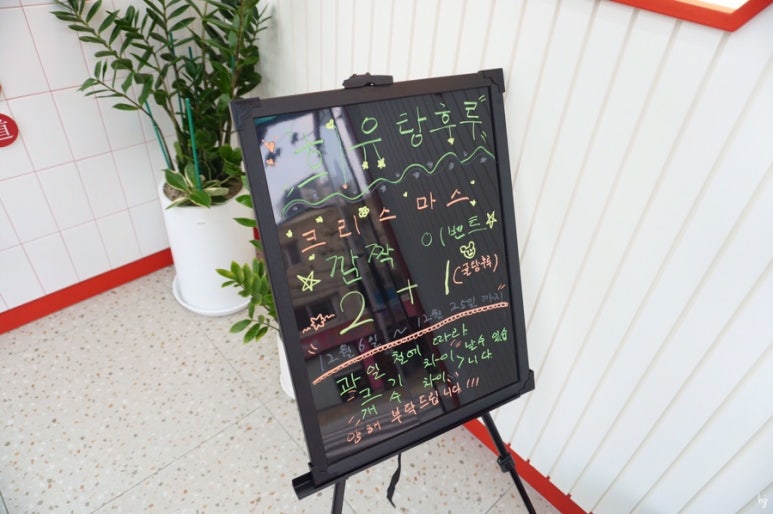 道
유 탕후루
크리스마스
깜짝 이벤트
2+1 (귤탕후루)
12월 6일 ~ 12월 25일 까지
과일 철에 따라
크기 차이 > 날수 있습
개수 차이 니다
양해 부탁드립니다!!!